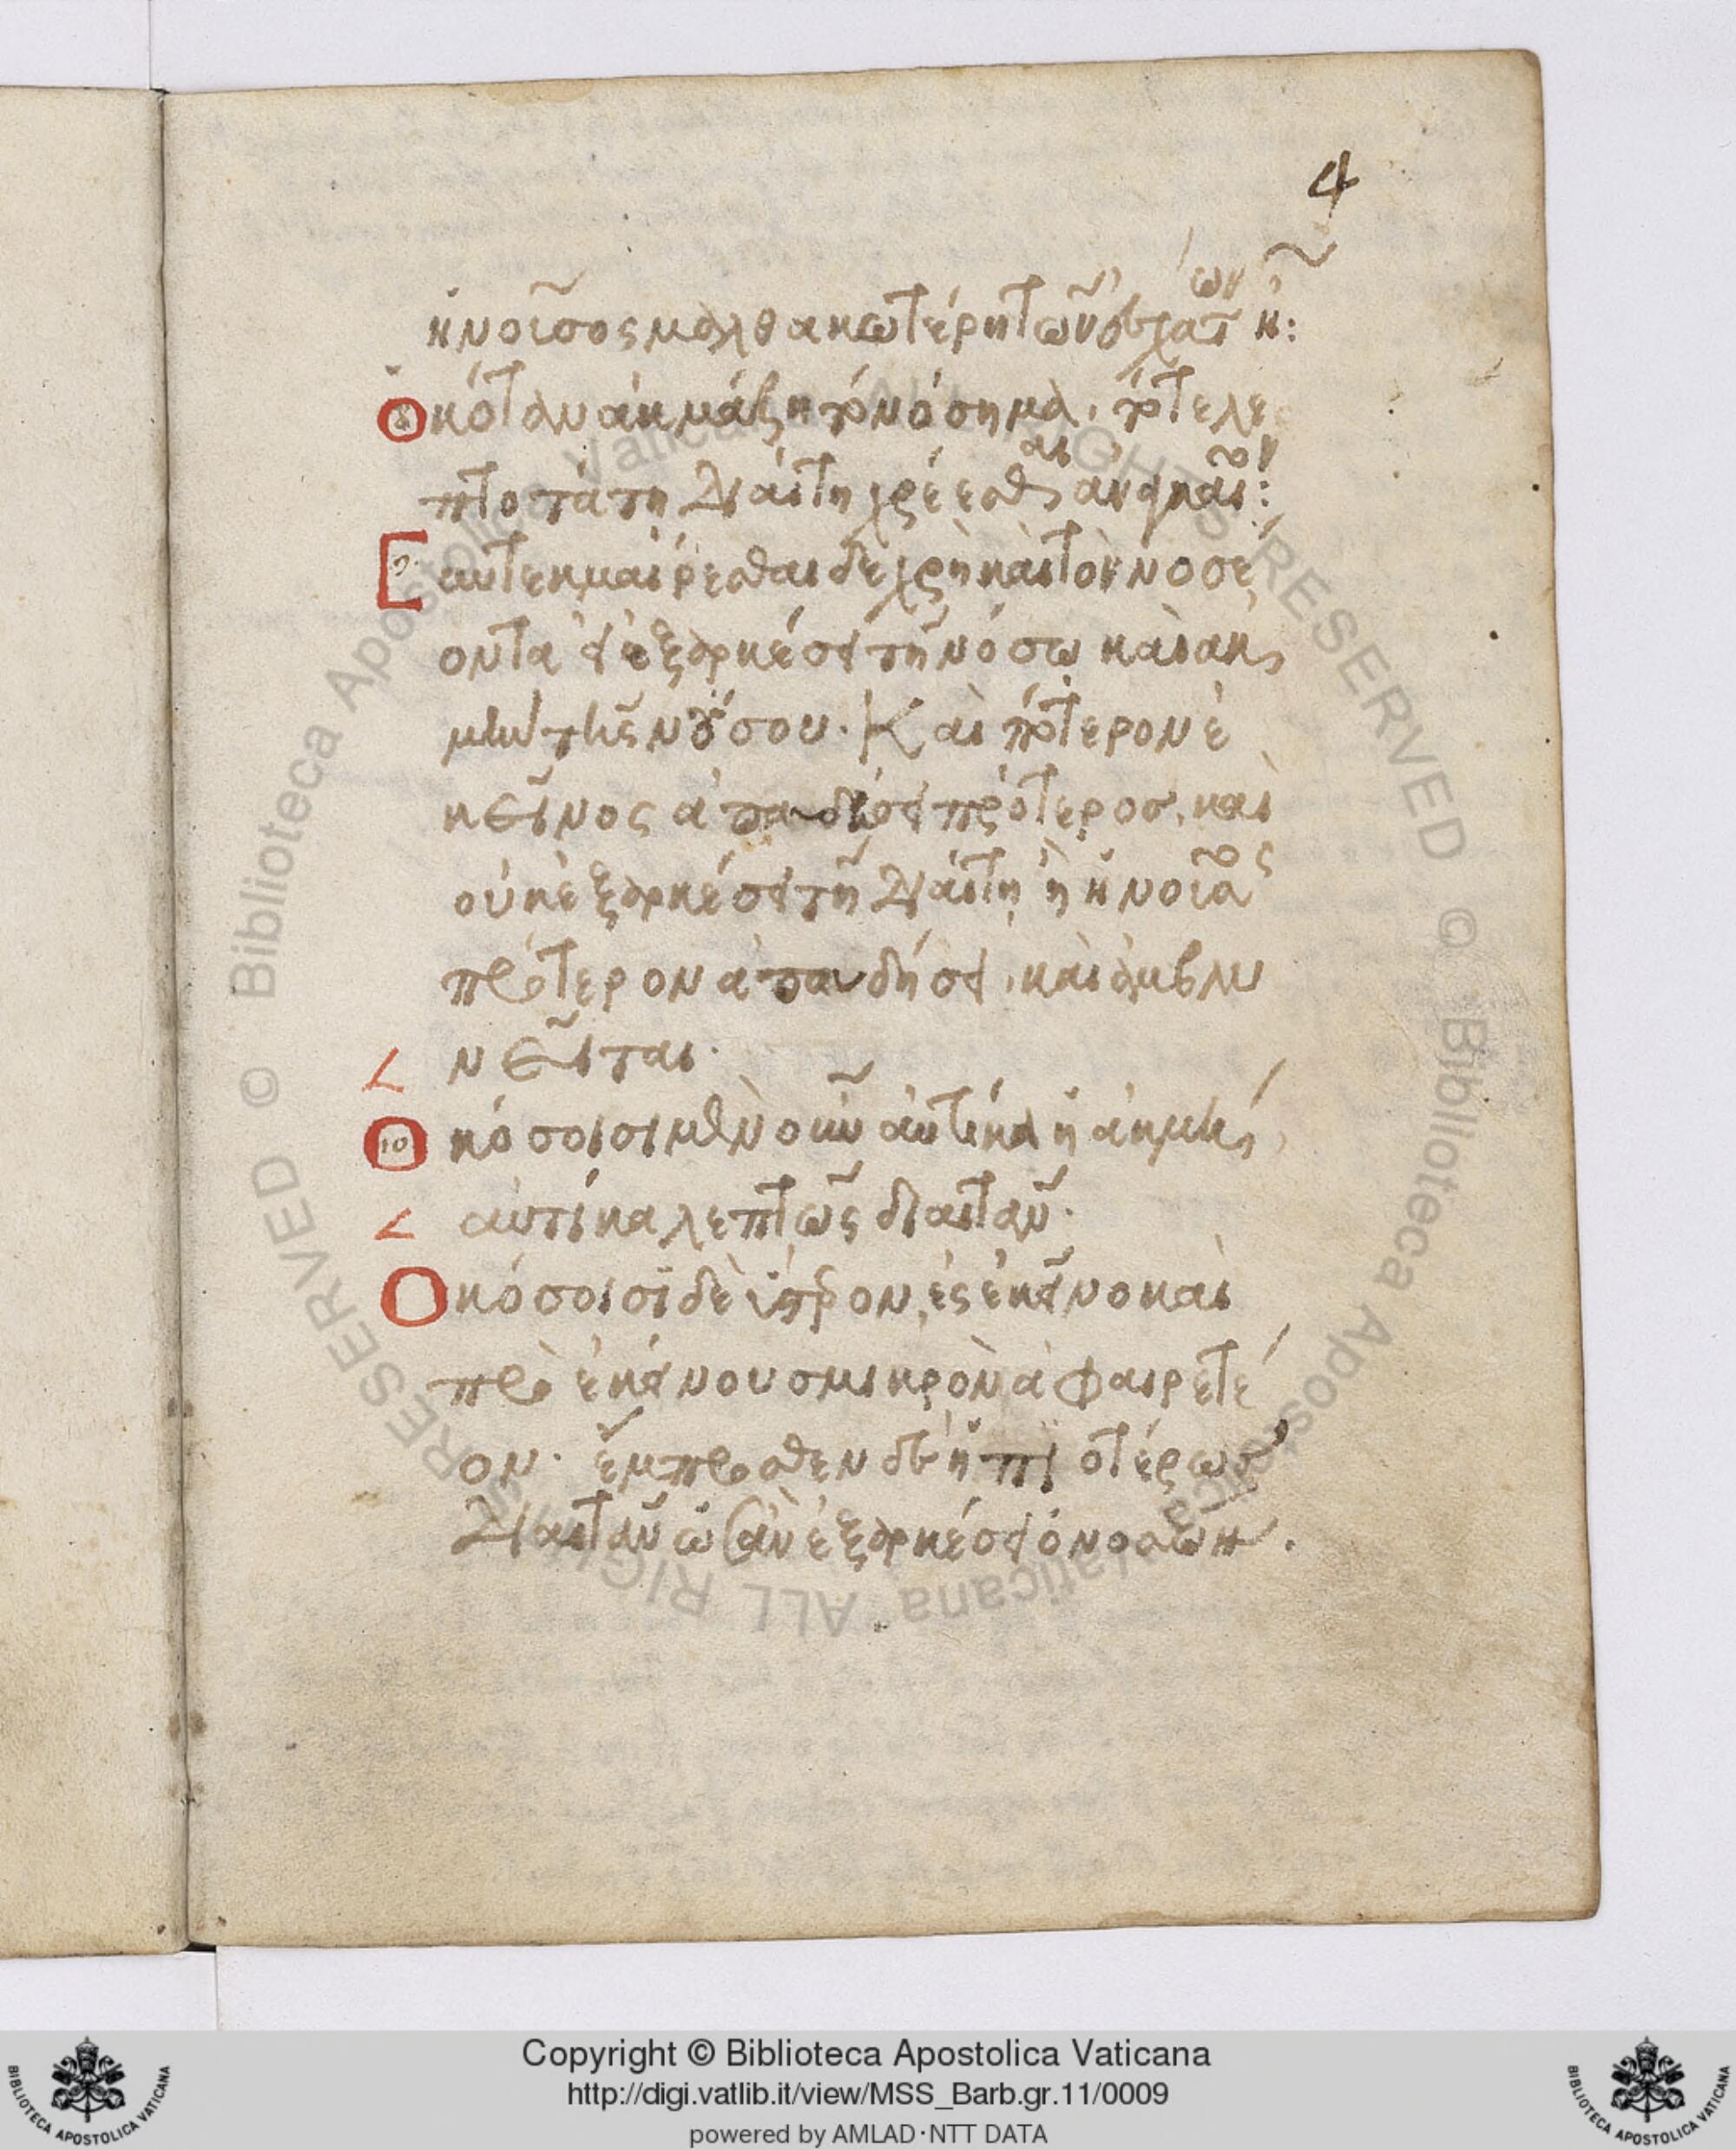 4
ἡ νοῦσος μαλθακωτέρη τῶν ἐσχάτων ᾖ:
8 Ὁκόταν ἀκμάζῃ τὸ νόσημα, τότε λε
πτοτάτῃ διαίτῃ χρέεσθαι ἀναγκαῖον:
9 Συντεκμαίρεσθαι δὲ χρὴ καὶ τὸν νοσέ
οντα εἰ ἐξαρκέσει τῇ νόσῳ καὶ ἀκ
μὴν τῆς νούσου. Καὶ πότερον ἐ
κεῖνος ἀπαυδήσει πρότερος, καὶ
οὐκ ἐξαρκέσει τῇ διαίτῃ ἢ ἡ νοῦσος
πρότερον ἀπαυδήσει, καὶ ἀμβλυ
νεῖται.
10 Ὁκόσοισι μὲν οὖν αὐτίκα ἡ ἀκμὴ,
αὐτίκα λεπτῶς διαιτᾶν.
Ὁκόσοισι δὲ ὕστερον, ἐς ἐκεῖνο καὶ
πρὸ ἐκείνου σμικρὸν ἀφαιρετέ
ον. ἔμπροσθεν δὲ ἢ πιοτέρως
διαιτᾶν ὡς ἂν ἐξαρκέσει ὁ νοσέων.
Copyright © Biblioteca Apostolica Vaticana
http://digi.vatlib.it/view/MSS_Barb.gr.11/0009
powered by AMLAD·NTT DATA
BIBLIOTECA APOSTOLICA VATICANA
BIBLIOTECA APOSTOLICA VATICANA
© Biblioteca Apostolica Vaticana ALL RIGHTS RESERVED © Biblioteca Apostolica Vaticana ALL RIGHTS RESERVED